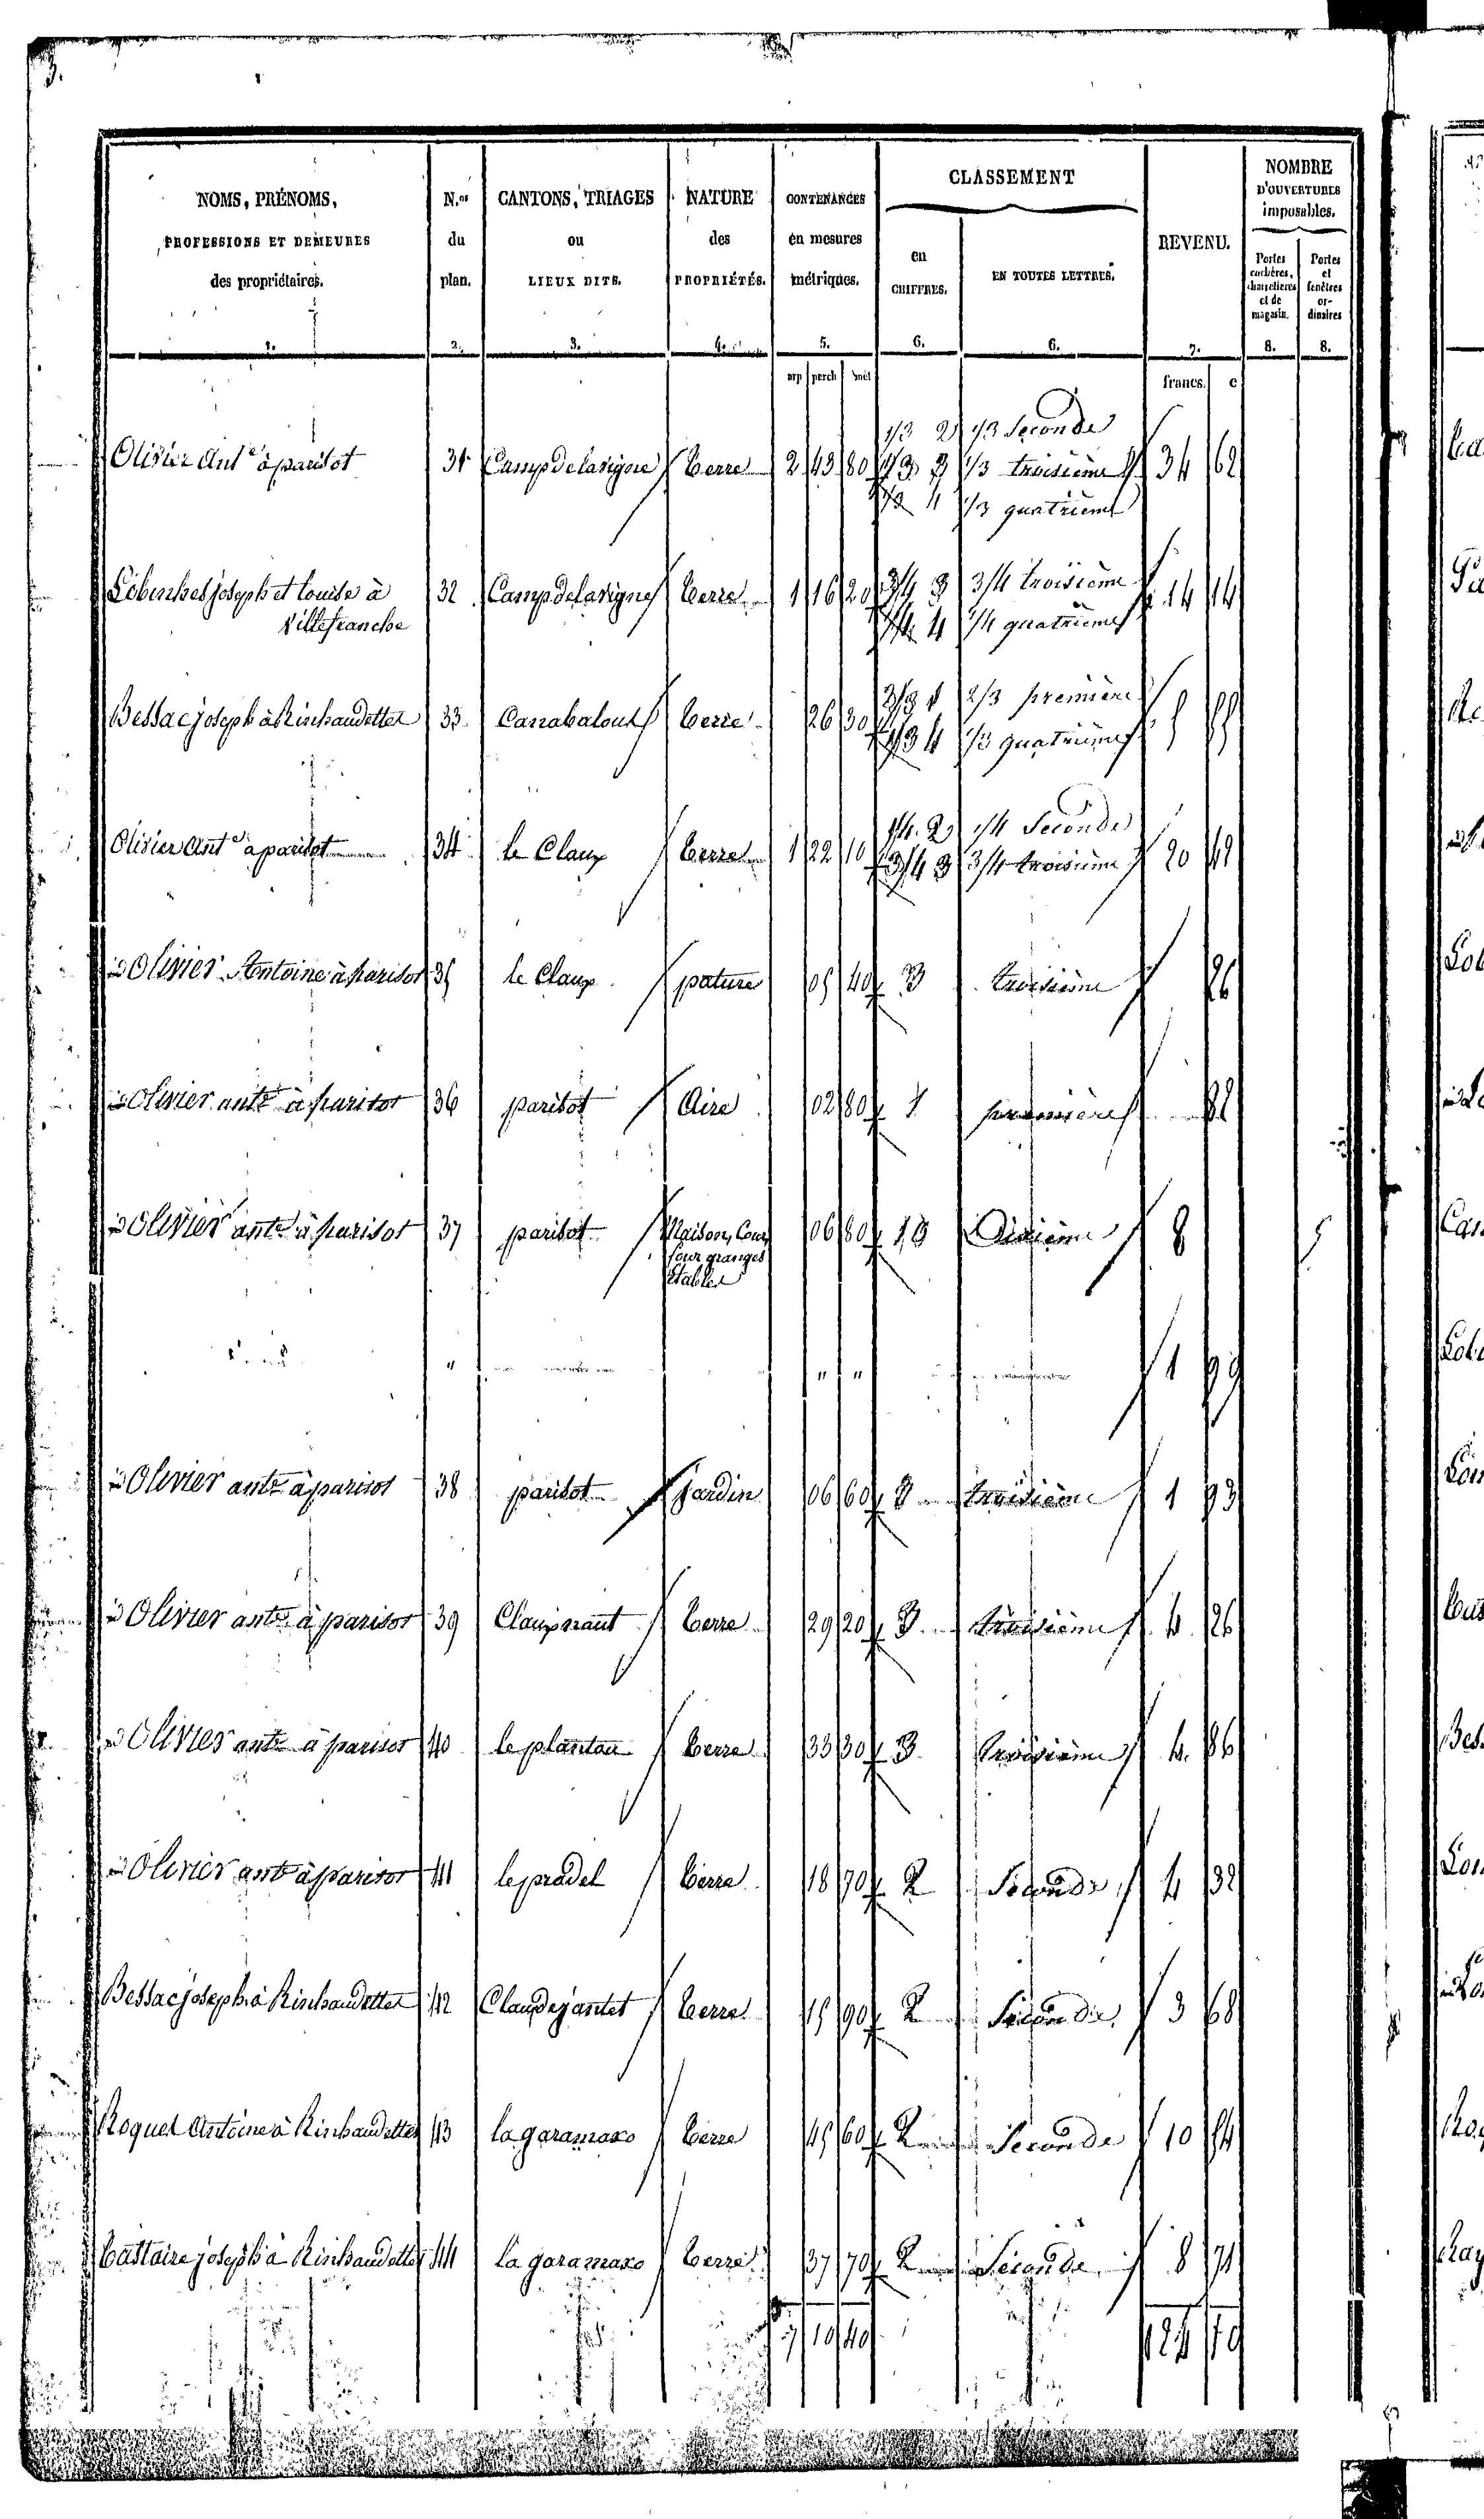 3.
NOMS, PRÉNOMS, PROFESSIONS ET DEMEURES des propriétaires. N.os du plan. CANTONS, TRIAGES ou LIEUX DITS. NATURE des PROPRIÉTÉS. CONTENANCES en mesures métriques. CLASSEMENT en CHIFFRES. EN TOUTES LETTRES. REVENU. NOMBRE D'OUVERTURES imposables. Portes cochères, charretières et de magasin. Portes et fenêtres ordinaires
1. 2. 3. 4. 5. 6. 6. 7. 8. 8.
arp perch mèt francs. c
1/3 2 1/3 Seconde
Olivier Ant.e à parisot 31 Camp de lavigne terre 2 43 80 1/3 3 1/3 troisième 34 62
1/3 4 1/3 quatrième
joseph et Louise à 32 Camp de lavigne terre 1 16 20 3/4 3 3/4 troisième 14 14
Villefranche 1/4 4 1/4 quatrième
Bessac joseph à 33 terre 26 30 2/3 1 2/3 première
1/3 4 1/3 quatrième
1/4 2 1/4 Seconde
Olivier Ant.e à parisot 34 le Claux terre 1 22 10 3/4 3 3/4 troisième 20
Olivier Antoine à parisot 35 le Claux pature 05 40 3 troisième 26
Olivier ant.e à parisot 36 parisot Aire 02 80 1 première
Olivier ant.e à parisot 37 parisot Maison, Cour 06 80 10 Dixième 8 5
four granges
Etables
" " " 1 99
Olivier ant.e à parisot 38 parisot jardin 06 60 3 troisième 1 93
Olivier ant.e à parisot 39 terre 29 20 3 troisième 4 26
Olivier ant.e à parisot 40 le plantou terre 33 30 3 troisième 4 86
Olivier ant.e à parisot 41 le pradel terre 18 70 2 Seconde 4 32
Bessac joseph à 42 terre 15 90 2 Seconde 3 68
Roquel Antoine à 43 terre 45 60 2 Seconde 10 54
joseph à 44 terre 37 70 2 Seconde 8 71
7 10 40 124 79